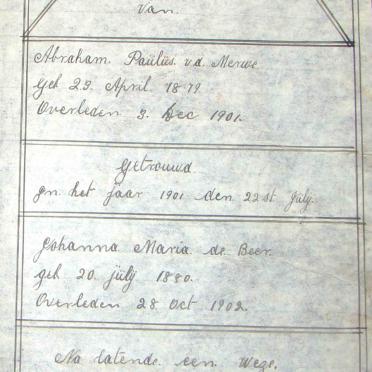 van.
Abraham. Paülüs. v.d. Merwe.
Geb 29. April. 1879.
Overleden 3. Dec 1901.
Getrouwd.
In het jaar 1901 den 22st Jülÿ.
Johanna Maria de Beer.
geb. 20. jülÿ 1880.
Overleden 28. Oct 1902.
Na latende. een. Weze.